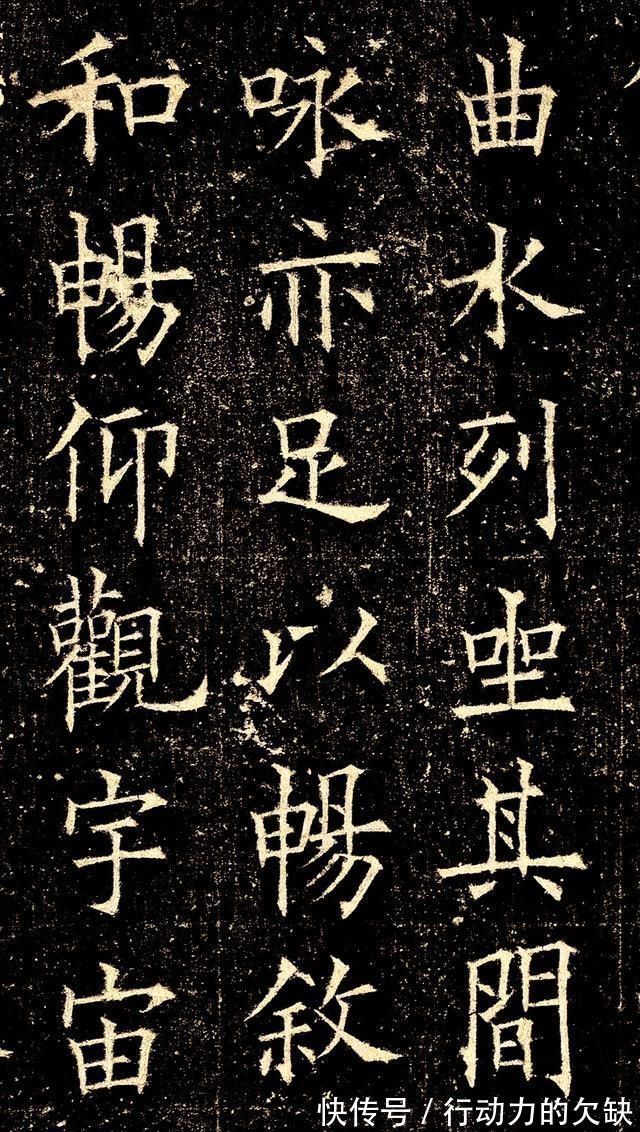 曲水列坐其間
咏亦足以暢敘
和暢仰觀宇宙
快传号/行动力的欠缺